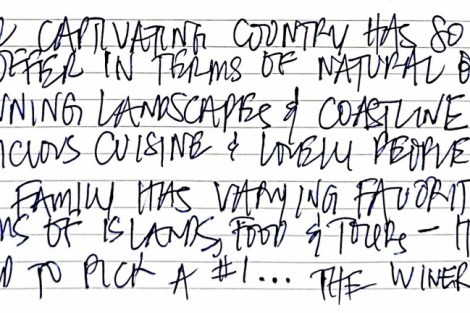 CAPTIVATING COUNTRY HAS SO
OFFER IN TERMS OF NATURAL B
NNING LANDSCAPES & COASTLINE
ICIOUS CUISINE & LOVELY PEOPLE
FAMILY HAS VARYING FAVORIT
MS OF ISLANDS, FOOD & TOURS – IT
D TO PICK A #1... THE WINER